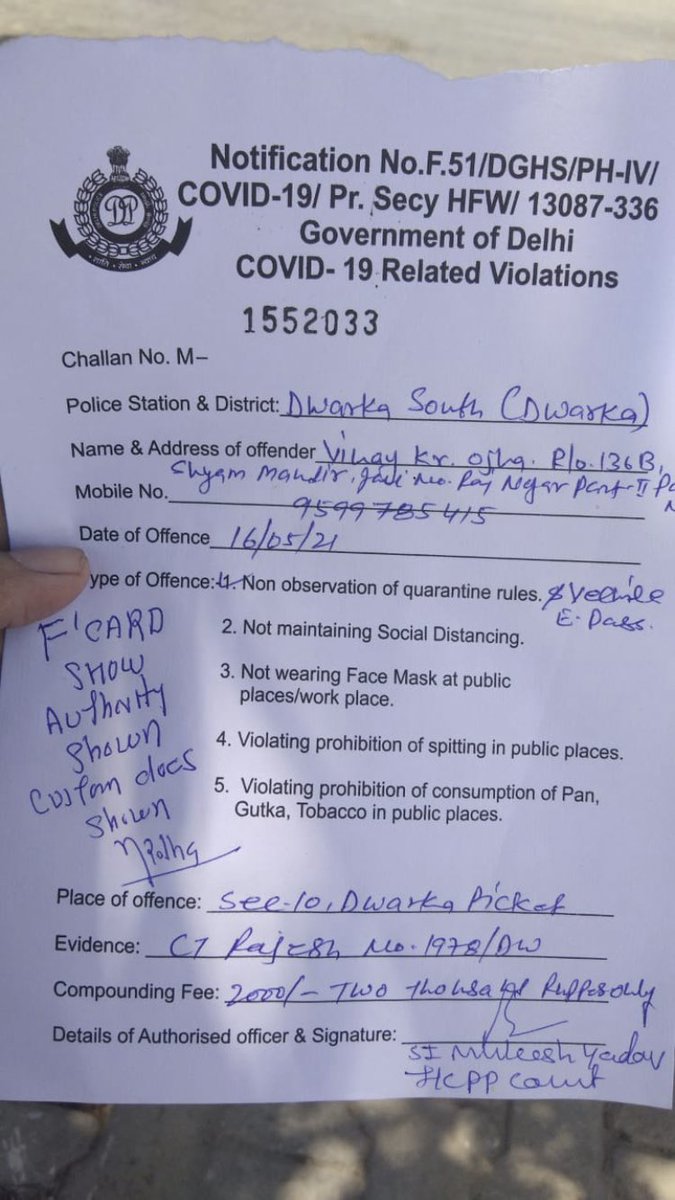 Notification No.F.51/DGHS/PH-IV/
COVID-19/ Pr. Secy HFW/ 13087-336
Government of Delhi
COVID- 19 Related Violations
1552033
Challan No. M–
Police Station & District: Dwarka South (Dwarka)
Name & Address of offender Vinay Kr. Ojha. R/o. 136B,
Shyam Mandir, Gali No. Raj Nagar Part-II
Mobile No. 9599785415
Date of Offence 16/05/21
ype of Offence: 1. Non observation of quarantine rules. & Vehicle
E-Pass.
2. Not maintaining Social Distancing.
3. Not wearing Face Mask at public
places/work place.
4. Violating prohibition of spitting in public places.
5. Violating prohibition of consumption of Pan,
Gutka, Tobacco in public places.
F'CARD
SHOW
Authority
Shown
Custom docs
Shown
Place of offence: Sec-10, Dwarka Picket
Evidence: CT Rajesh No. 1978/DW
Compounding Fee: 2000/- Two Thousand Rupees only
Details of Authorised officer & Signature:
SI Yadav
Court